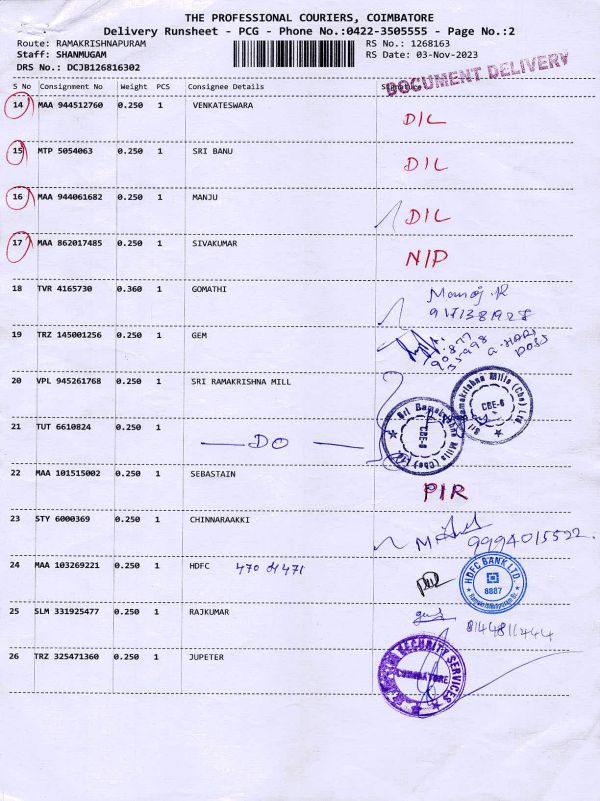 THE PROFESSIONAL COURIERS, COIMBATORE
Delivery Runsheet - PCG - Phone No.:0422-3505555 - Page No.:2
Route: RAMAKRISHNAPURAM RS No.: 1268163
Staff: SHANMUGAM RS Date: 03-Nov-2023
DRS No.: DCJB126816302
DOCUMENT DELIVERY
S No Consignment No Weight PCS Consignee Details Signature
14 MAA 944512760 0.250 1 VENKATESWARA D/L
15 MTP 5054063 0.250 1 SRI BANU D/L
16 MAA 944061682 0.250 1 MANJU D/L
17 MAA 862017485 0.250 1 SIVAKUMAR N/P
18 TVR 4165730 0.360 1 GOMATHI Manoj .R
19 TRZ 145001256 0.250 1 GEM
20 VPL 945261768 0.250 1 SRI RAMAKRISHNA MILL
Sri Ramakrishna Mills (Cbe) Ltd CBE-6
21 TUT 6610824 0.250 1 — DO —
Sri Ramakrishna Mills (Cbe) Ltd CBE-6
22 MAA 101515002 0.250 1 SEBASTAIN PIR
23 STY 6000369 0.250 1 CHINNARAAKKI 9994015522.
24 MAA 103269221 0.250 1 HDFC
HDFC BANK LTD. 8887
25 SLM 331925477 0.250 1 RAJKUMAR 8144811444
26 TRZ 325471360 0.250 1 JUPETER
SECURITY SERVICES COIMBATORE